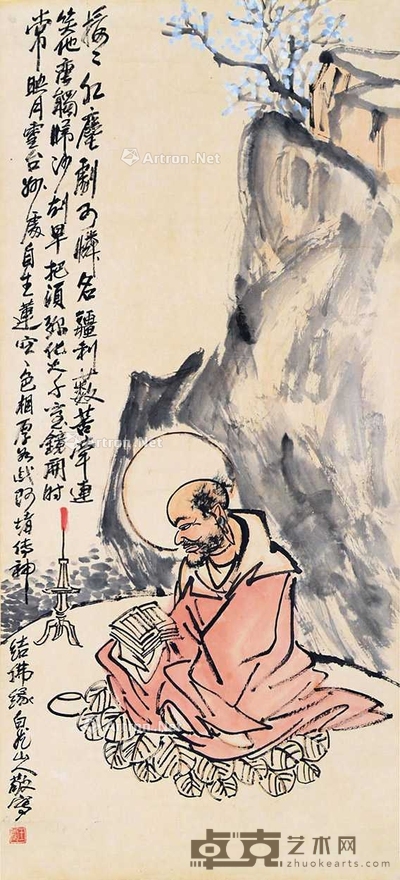 擾〻紅塵劇可憐名疆利藪苦牽連
笑他蠻觸歸沙劫早把須彌化大千寶鏡開時
常照月靈台妙處自生蓮空〻色相原如此阿堵傳神
結佛緣白龍山人敬寫
Artron.Net
Artron.Net
Artron.Net
卓克艺术网
zhuokearts.com